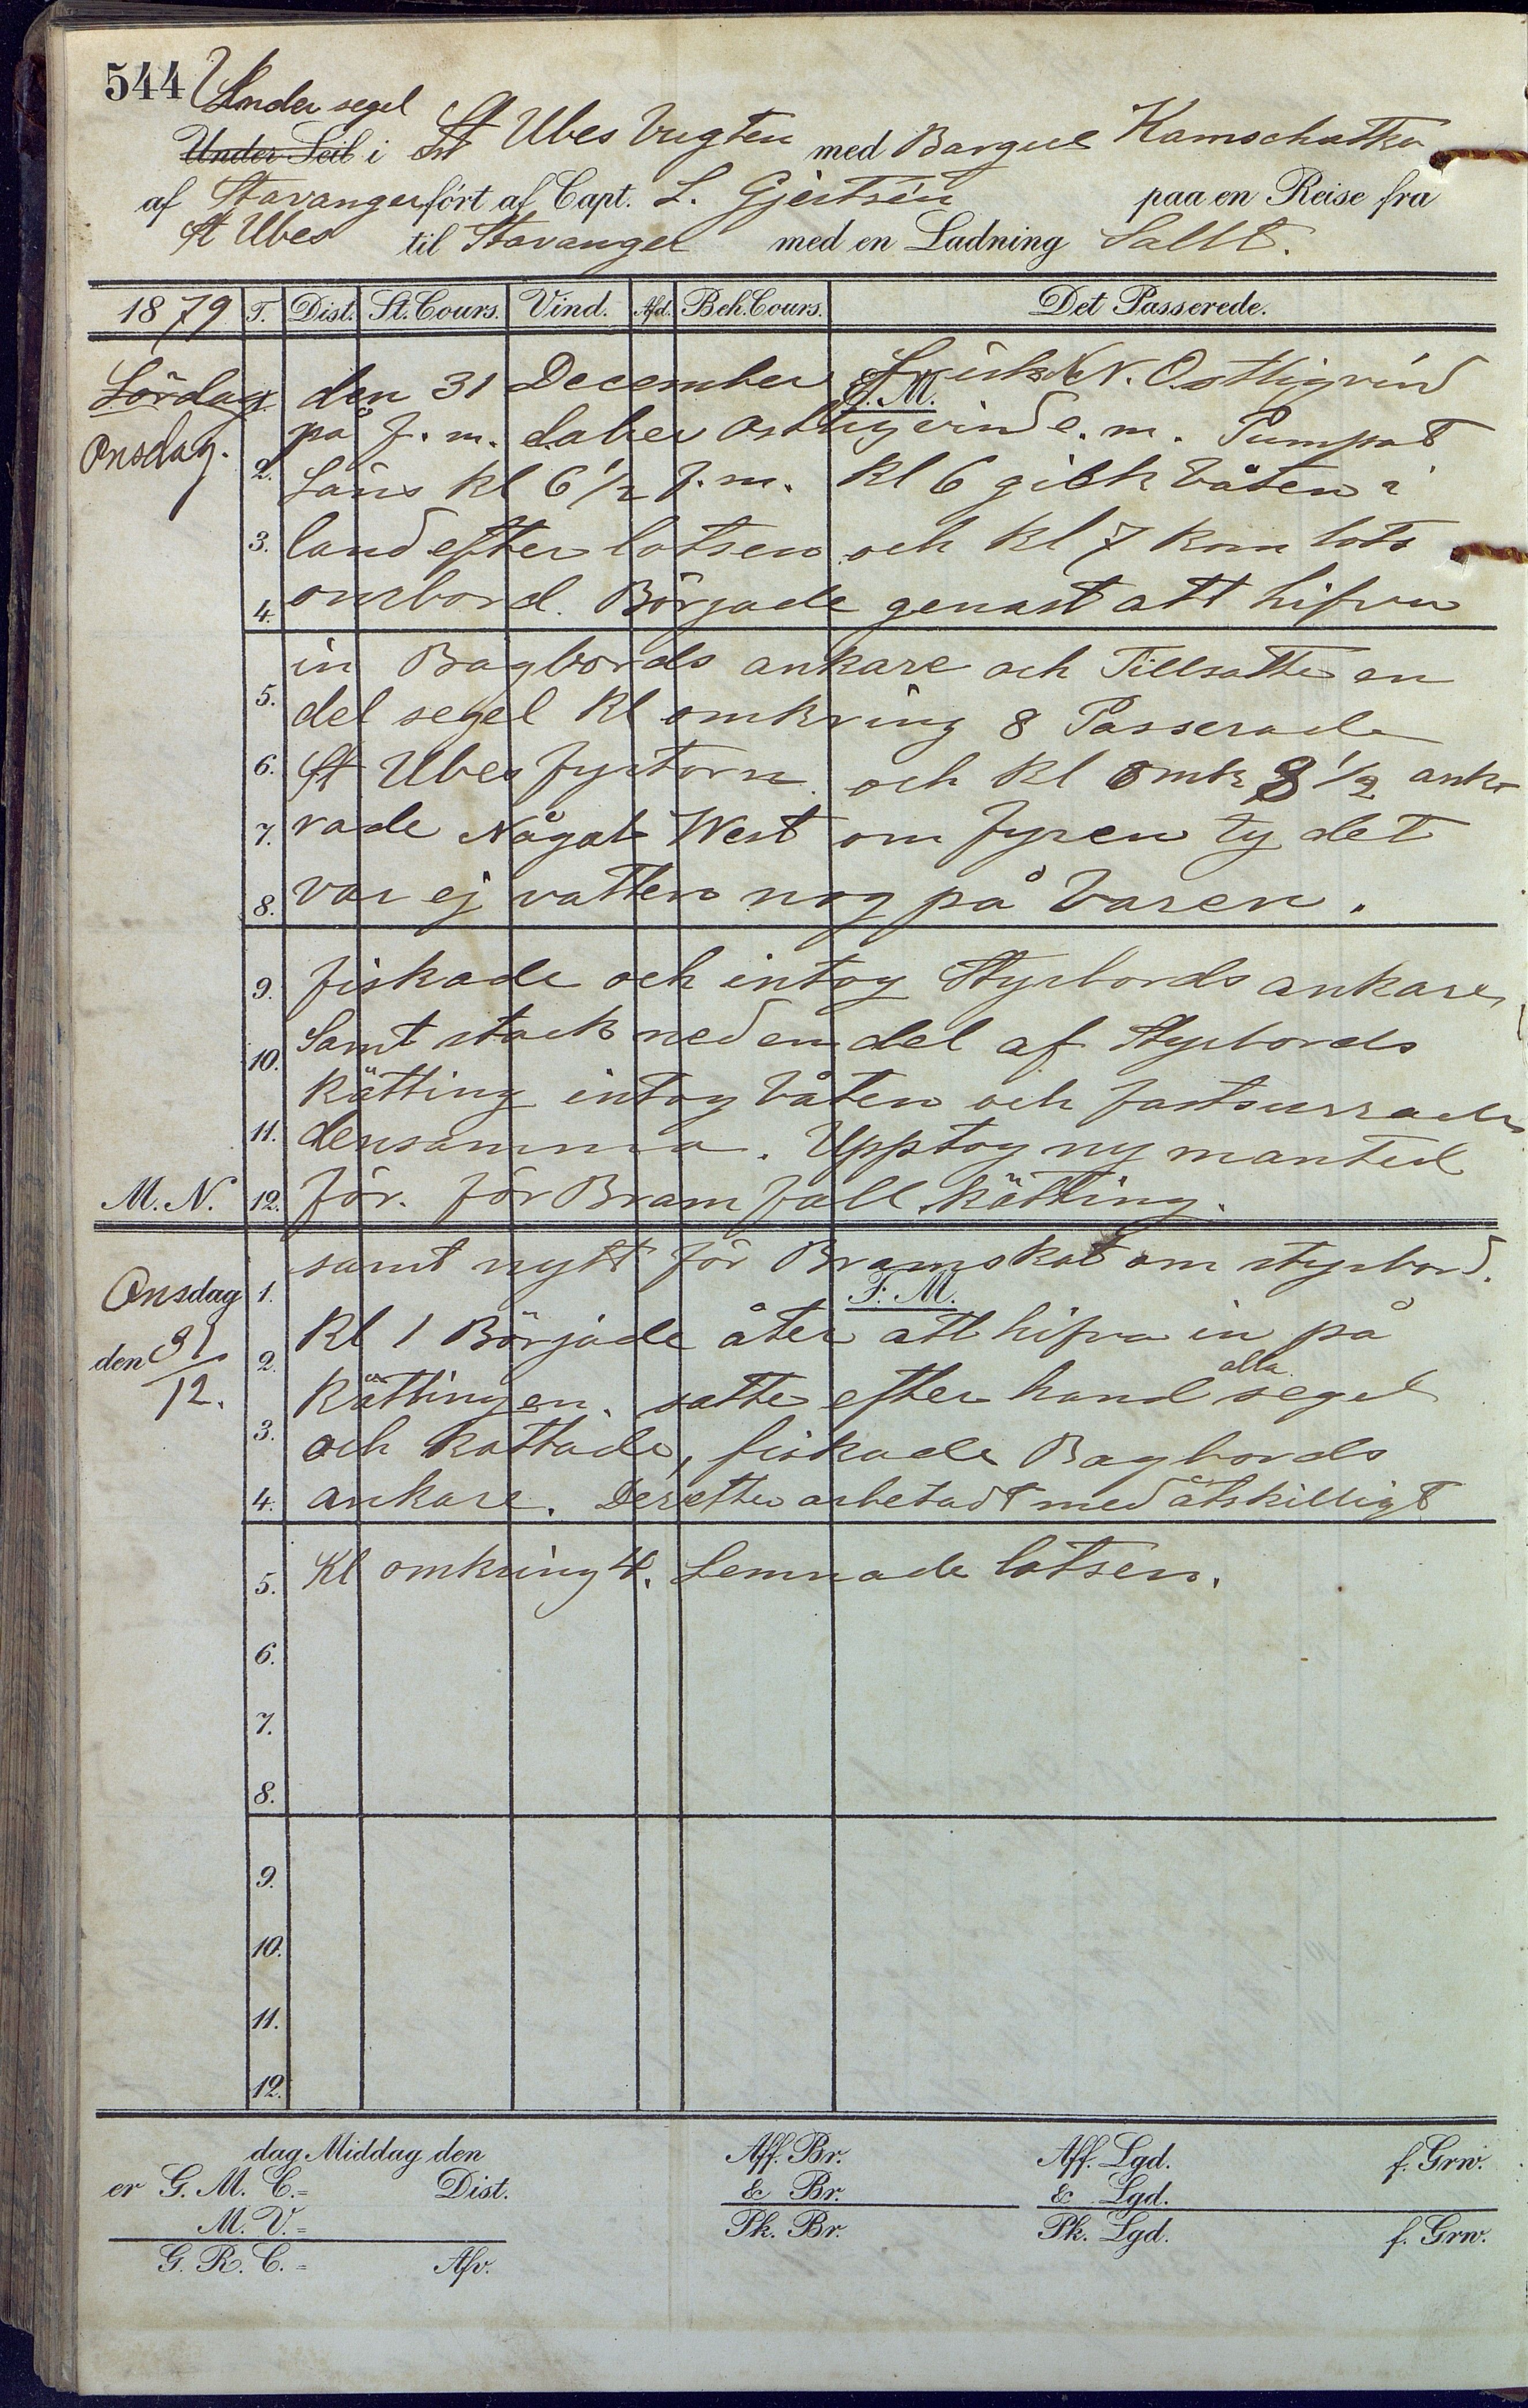 544
Under segel
Under Seil i St Ubes bugten med Barque Kamschatka
af Stavanger fört af Capt. L. Gjertsen paa en Reise fra
St Ubes til Stavanger med en Ladning Sallt.
1879 T. Dist. St. Cours. Vind. Afd. Beh. Cours. Det Passerede.
Lördag den 31 December Frisk N. Ostligvind
E. M.
Onsdag. på f. m. laber ostligvind e. m. Pumpat
2. Läns kl 6 1/2 f. m. Kl 6 gick båten i
3. land efter lotsen och kl 7 kom lots
4. ombord. Började genast att hifva
in Bagbords ankare och Tillsatte en
5. del segel kl omkring 8 Passerade
6. St Ubes fyrtorn och kl omkr 8 1/2 ank
7. rade Något West om fyren ty det
8. var ej vatten nog på baren.
9. fiskade och intog Styrbords ankare
10. Samt stack ned en del af Styrbords
kätting intog båten och fastsurrade
11. densamma. Upptog ny mantel
M. N. 12. för. för Bram fall kätting.
samt nytt för Bramskot om styrbord.
Onsdag 1.
F. M.
Kl 1 Började åter att hifva in på
den 31/12. 2.
alla
Kättingen. satte efter hand segel
3. och kattade, fiskade Bagbords
4. ankare. Derefter arbetadt med åtskilligt
5. Kl omkring 4. Lemnade lotsen.
6.
7.
8.
9.
10.
11.
12.
dag Middag den Aff. Br. Aff. Lgd. f. Grw.
er G. M. C. = Dist. & Br. & Lgd.
M. V. = Pk. Br. Pk. Lgd. f. Grw.
G. R. C. = Afv.